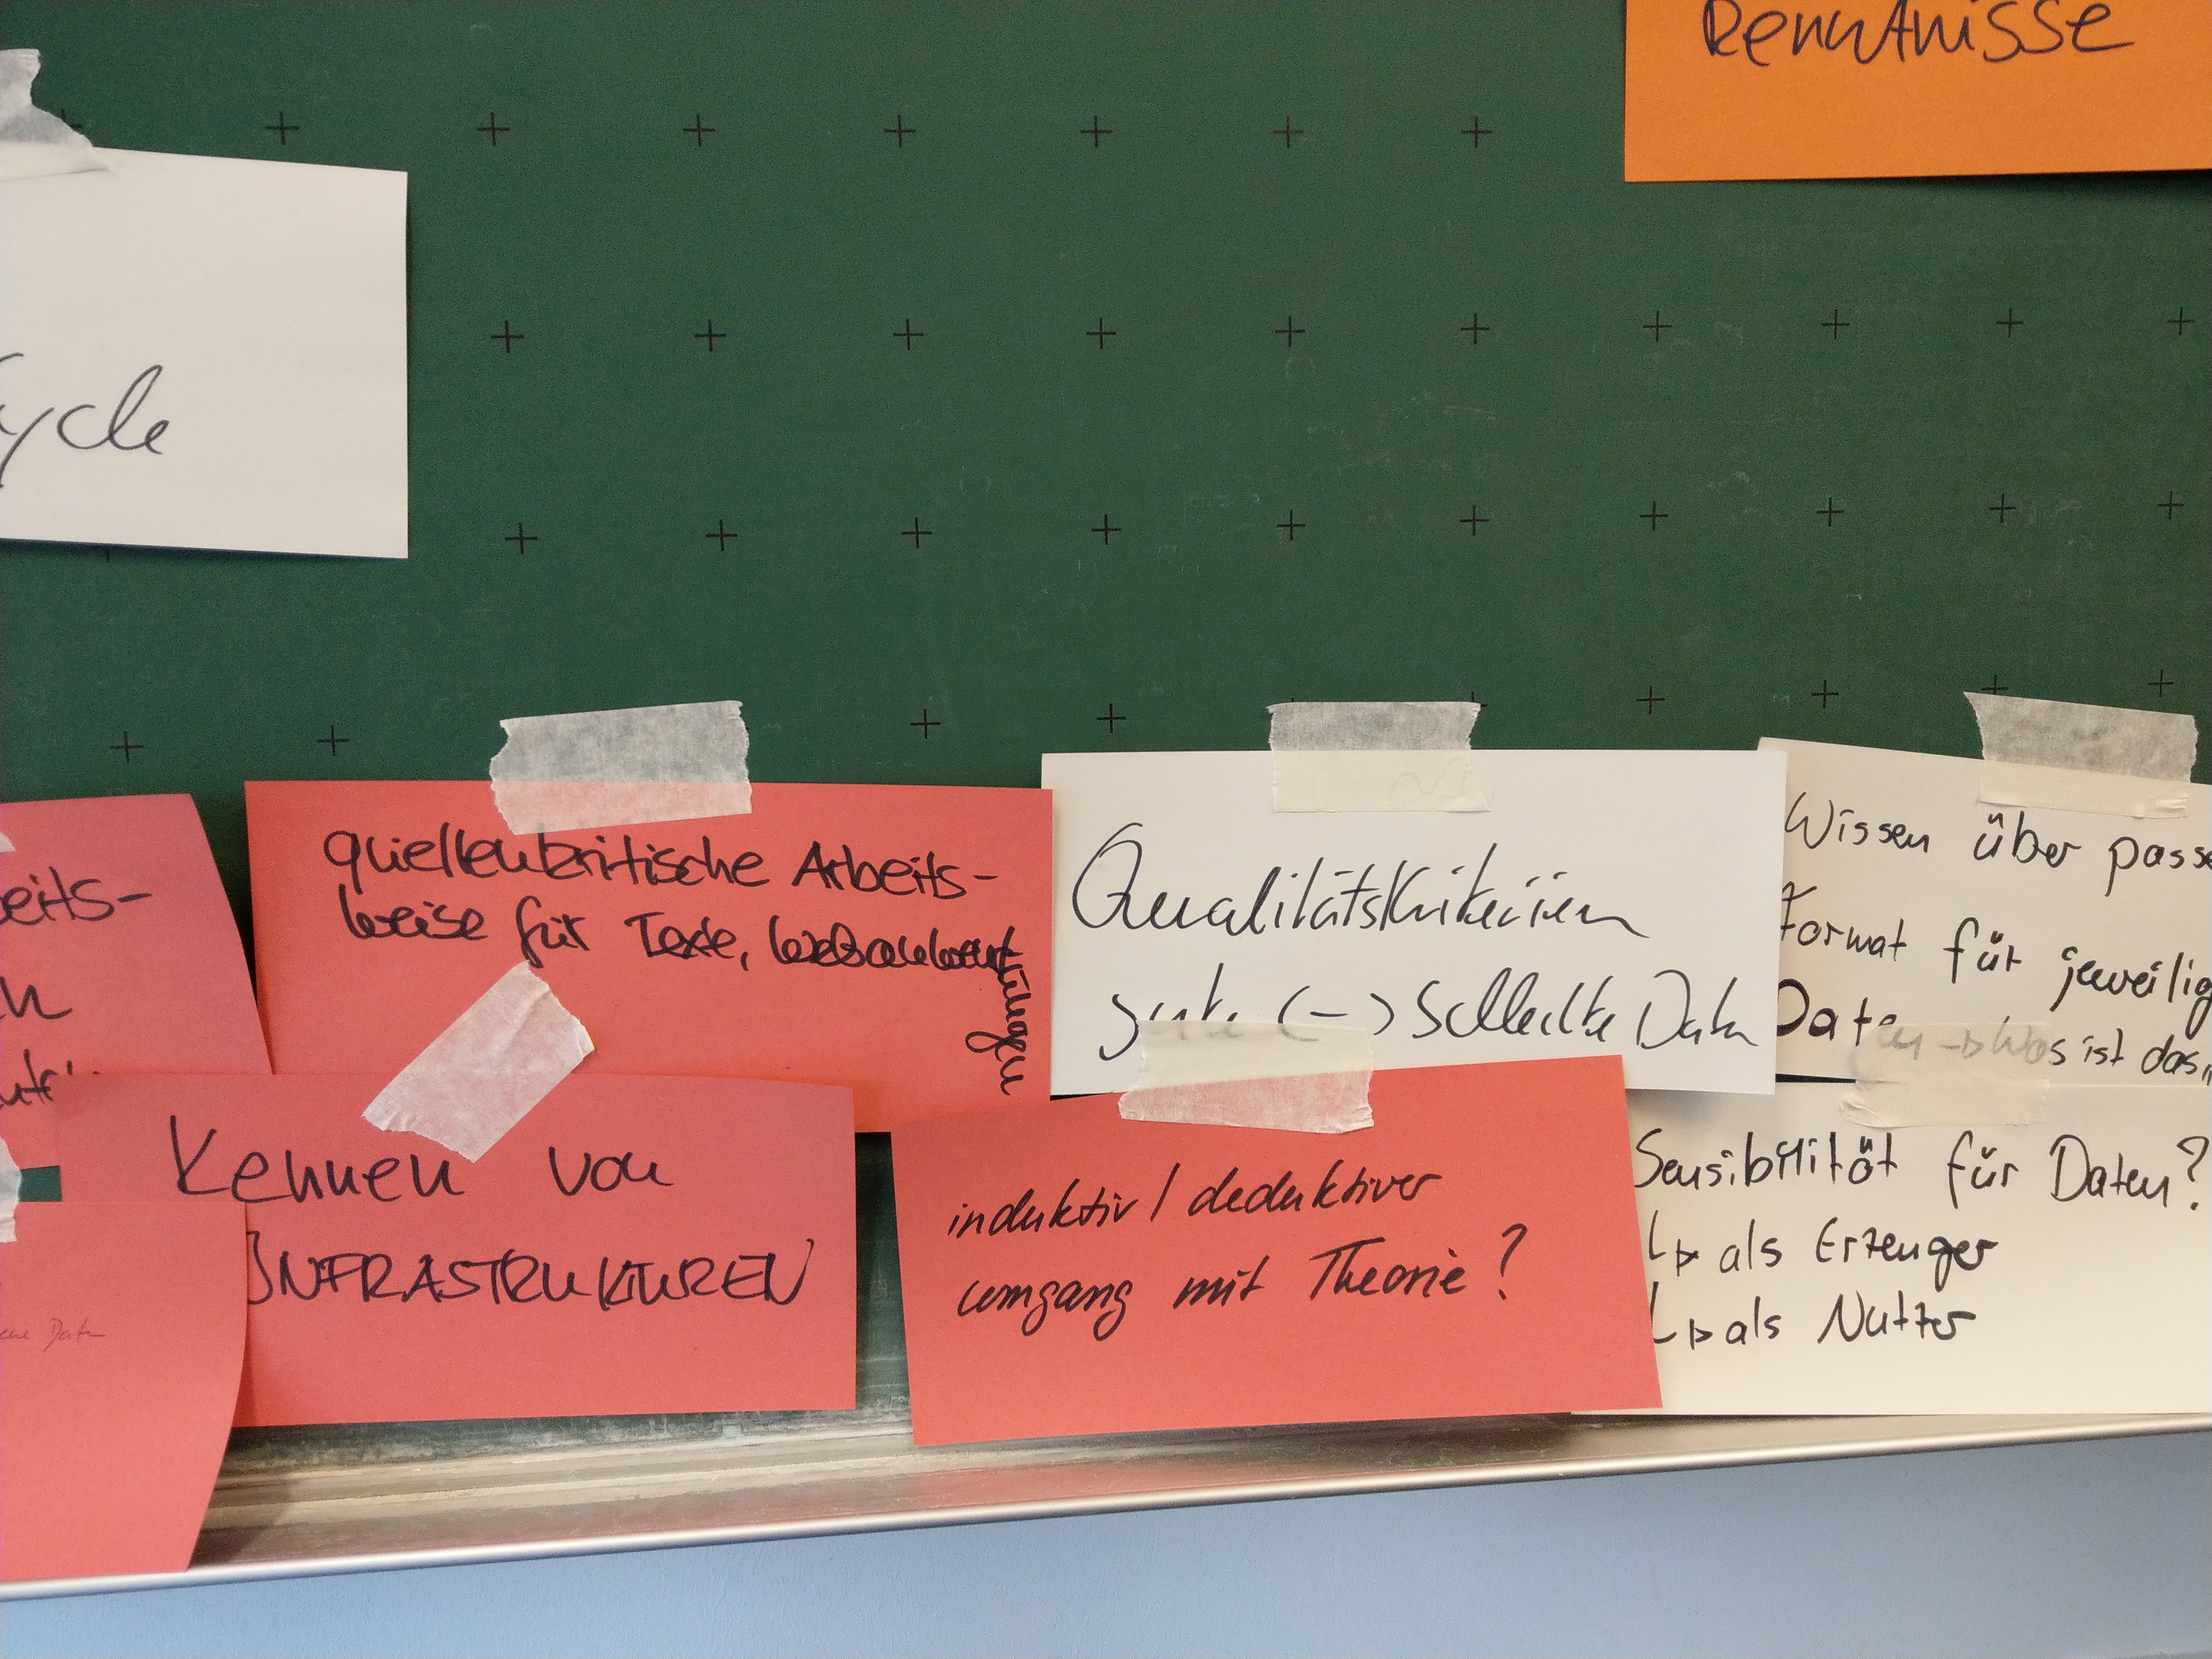 Kenntnisse
ycle
quellenkritische Arbeits-
weise für Texte,
Qualitätskriterien
gute <-> schlechte Daten
Wissen über passe
Format für jeweilig
Daten -> Was ist das,
eits-
Kennen von
INFRASTRUKTUREN
induktiv / deduktiver
umgang mit Theorie?
Sensibilität für Daten?
als Erzeuger
als Nutzer
Daten